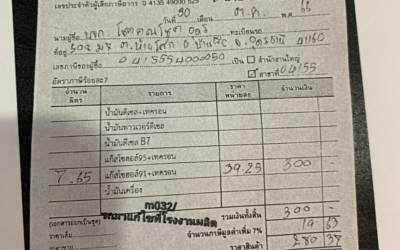 เลขประจำตัวผู้เสียภาษีอากร 0 4135 49000 529
วันที่ 30 เดือน ต.ค. พ.ศ. 66
นามผู้ซื้อ บจก. โชคคณโชติ ทะเบียนรถ
ที่อยู่ 502 ม.5 อ. จ. อุดรธานี 41160
เลขภาษีของผู้ซื้อ เป็น สำนักงานใหญ่
สาขาที่ 04155
อัตราภาษีร้อยละ7
จำนวน ลิตร รายการ ราคา หน่วยละ จำนวนเงิน
น้ำมันดีเซล+เทครอน
น้ำมันเพาเวอร์ดีเซล
น้ำมันดีเซล B7
แก๊สโซฮอล์95+เทครอน
7.65 แก๊สโซฮอล์91+เทครอน 39.25 300 -
น้ำมันเครื่อง
m032/
รถมาแก้ไขที่โรงงานผลิต รวมเงินทั้งสิ้น 300 -
จำนวนภาษีมูลค่าเพิ่ม 7% 19 63
ราคาสินค้า 280 37